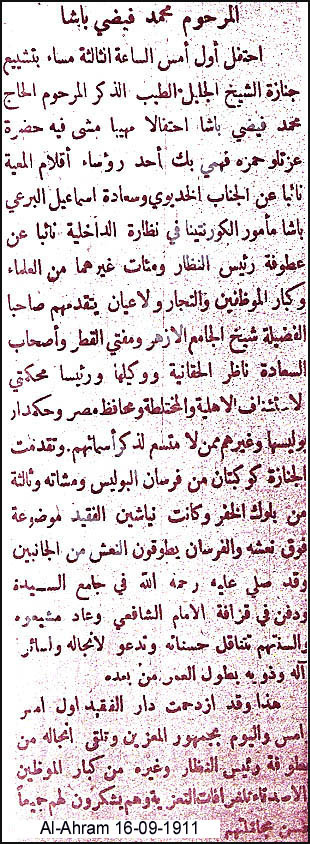 المرحوم محمد فيضي باشا
احتفل أول أمس الساعة الثالثة مساء بتشييع
جنازة الشيخ الجليل الطيب الذكر المرحوم الحاج
محمد فيضي باشا احتفالا مهيبا مشى فيه حضرة
عزتلو حمزه فهمي بك أحد رؤساء أقلام المعية
نائبا عن الجناب الخديوي وسعادة اسماعيل البرعي
باشا مأمور الكورنتينا في نظارة الداخلية نائبا عن
عطوفة رئيس النظار ومئات غيرهما من العلماء
وكبار الموظفين والتجار والاعيان يتقدمهم صاحبا
الفضيلة شيخ الجامع الازهر ومفتي القطر وأصحاب
السعادة ناظر الحقانية ووكيلها ورئيسا محكمتي
الاستئناف الاهلية والمختلطة ومحافظ مصر وحكمدار
بوليسها وغيرهم ممن لا متسع لذكر أسمائهم. وتقدمت
الجنازة كوكبتان من فرسان البوليس ومشاته وثالثة
من بلوك الخفر وكانت نياشين الفقيد موضوعة
فوق نعشه والفرسان يطوقون النعش من الجانبين
وقد صلي عليه رحمه الله في جامع السيدة
ودفن في قرافة الامام الشافعي وعاد مشيعوه
والسنتهم تتناقل حسناته وتدعو لانجاله ولسائر
آله وذويه بطول العمر من بعده
هذا وقد ازدحمت دار الفقيد اول امس
امس واليوم بجمهور المعزين وتلقى انجاله من
عطوفة رئيس النظار وغيره من كبار الموظفين
الاصدقاء تلغرافات التعزية وهم يشكرون لهم جميعاً
Al-Ahram 16-09-1911